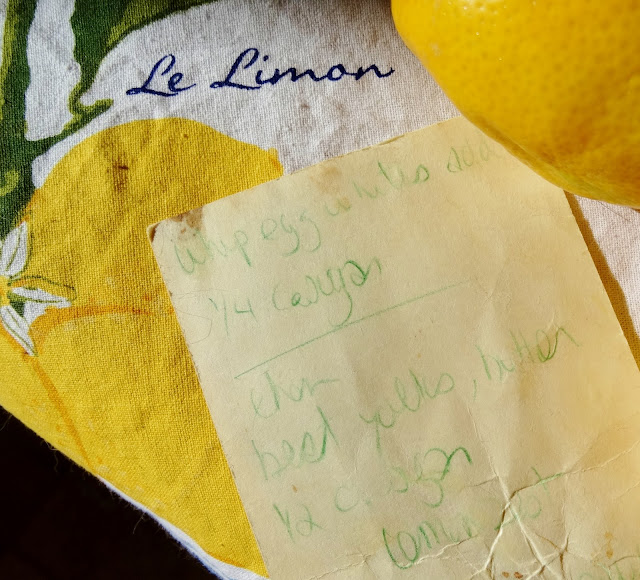 Le Limon
whip egg whites add
1/4 c sugar
then
beat yolks, butter
1/2 c. sugar